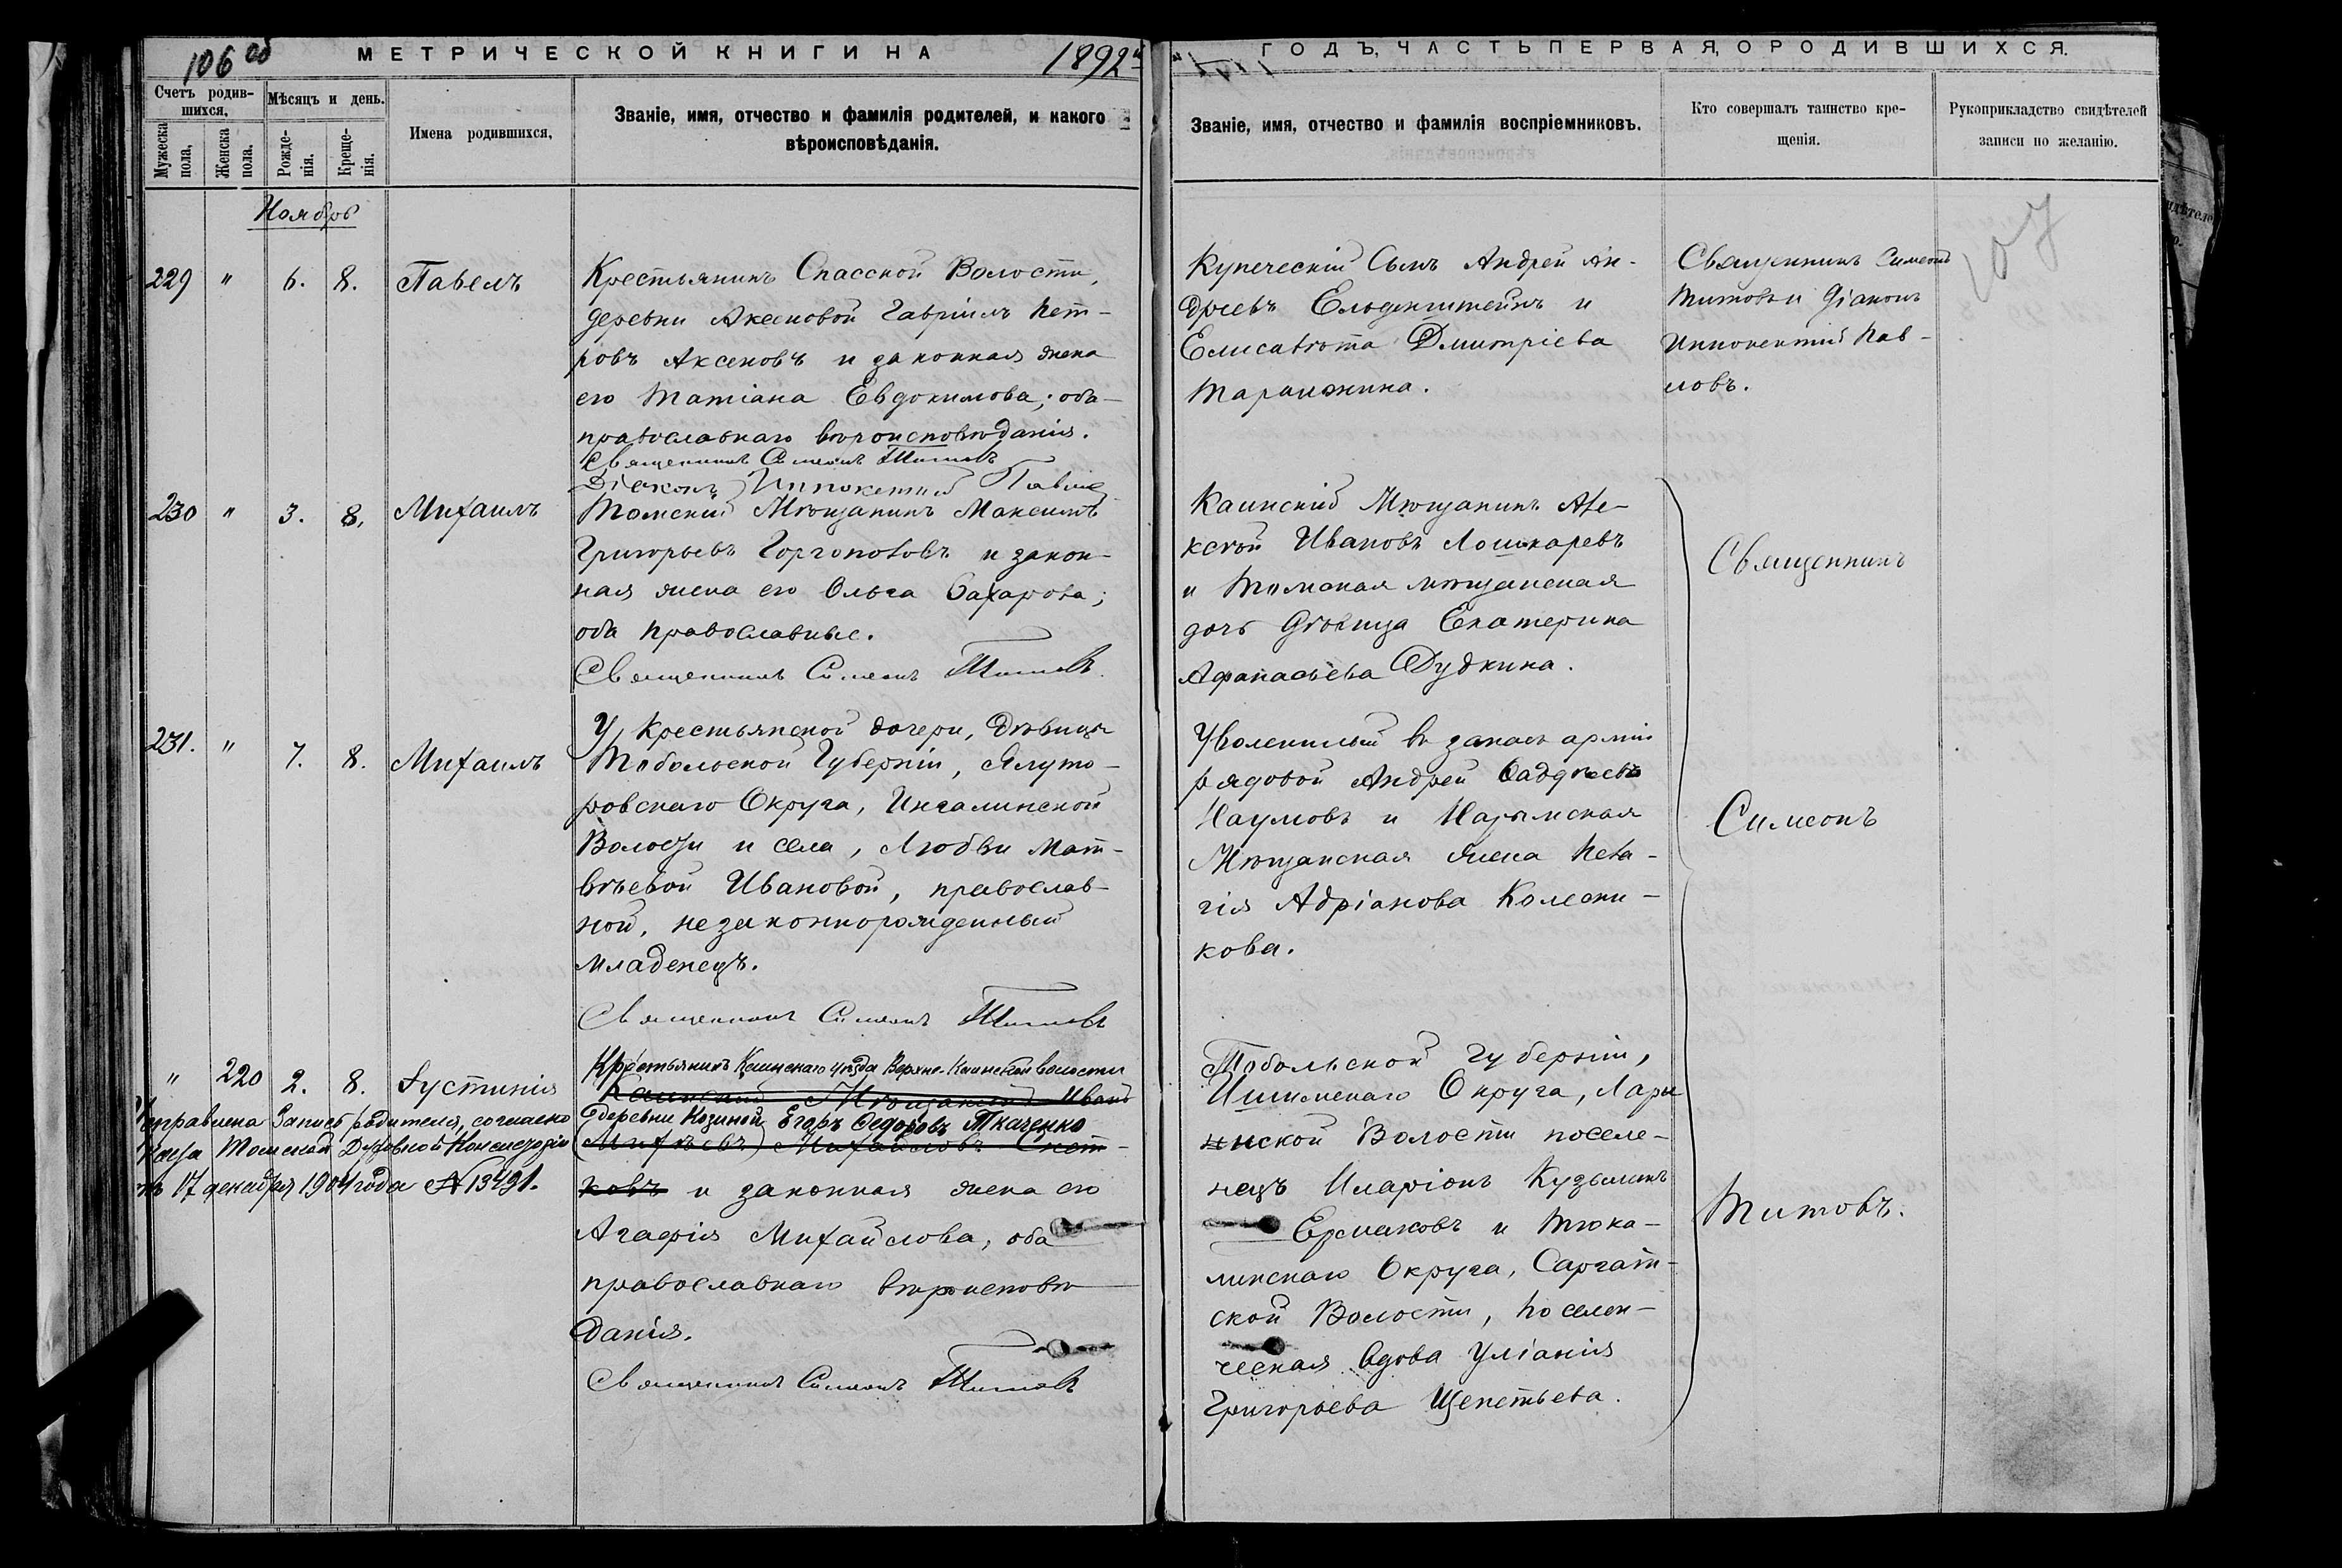 106 об
МЕТРИЧЕСКОЙ КНИГИ НА 1892й
ГОДЪ, ЧАСТЬ ПЕРВАЯ, О РОДИВШИХСЯ.
Счетъ родив-
шихся,
Мужеска
пола,
Женска
пола.
Мѣсяцъ и день.
Рожде-
нія.
Креще-
нія.
Имена родившихся,
Званіе, имя, отчество и фамилія родителей, и какого
вѣроисповѣданія.
Званіе, имя, отчество и фамилія воспріемниковъ.
Кто совершалъ таинство кре-
щенія.
Рукоприкладство свидѣтелей
записи по желанію.
107
Ноябрь
229 " 6. 8. Павелъ
Крестьянинъ Спасской Волости,
деревни Аксеновой Гавріилъ Пет-
ровъ Аксеновъ и законная жена
его Татіана Евдокимова; оба
православнаго вѣроисповѣданія.
Священникъ Симеонъ Титовъ
Діаконъ Иннокентій Павловъ
Купеческій Сынъ Андрей Ан-
дреевъ Ельденштейнъ и
Елисавѣта Дмитріева
Таражнина.
Священникъ Симеонъ
Титовъ и Діаконъ
Иннокентій Пав-
ловъ.
230 " 3. 8. Михаилъ
Томскій Мѣщанинъ Максимъ
Григорьевъ Горгоповъ и закон-
ная жена его Ольга Захарова;
оба православные.
Священникъ Симеонъ Титовъ
Каинскій Мѣщанинъ Але-
ксѣй Ивановъ Лошкаревъ
и Томская мѣщанская
дочь дѣвица Екатерина
Афанасьева Дудкина.
231. " 7. 8. Михаилъ
У крестьянской дочери, дѣвицы
Тобольской Губерніи, Ялуто-
ровскаго Округа, Ингалинской
Волости и села, Любви Мат-
вѣевой Ивановой, православ-
ной, незаконнорожденный
младенецъ.
Священникъ Симеонъ Титовъ
Уволенный въ запасъ арміи
рядовой Андрей Фаддѣевъ
Наумовъ и Нарымская
Мѣщанская жена Пела-
гія Адріанова Колесни-
кова.
" 220 2. 8. Іустинія
Исправлена Запись родителя, согласно
Указа Томской Духовной Консисторіи
отъ 17 декабря 1904 года № 13491.
Крестьянинъ Каинскаго уѣзда Верхне-Каинской волости
Каинскій Мѣщанинъ Иванъ
деревни Козиной Егоръ Федоровъ Ткаченко
(Михѣевъ) Михайловъ Снѣт-
ковъ и законная жена его
Агафія Михайлова, оба
православнаго вѣроисповѣ-
данія.
Священникъ Симеонъ Титовъ
Тобольской Губерніи,
Ишимскаго Округа, Лари-
нской Волости поселе-
нецъ Иларіонъ Кузьминъ
Ермаковъ и Тюка-
линскаго Округа, Саргат-
ской Волости, поселен-
ческая вдова Уліанія
Григорьева Щепетьева.
Священникъ
Симеонъ
Титовъ.